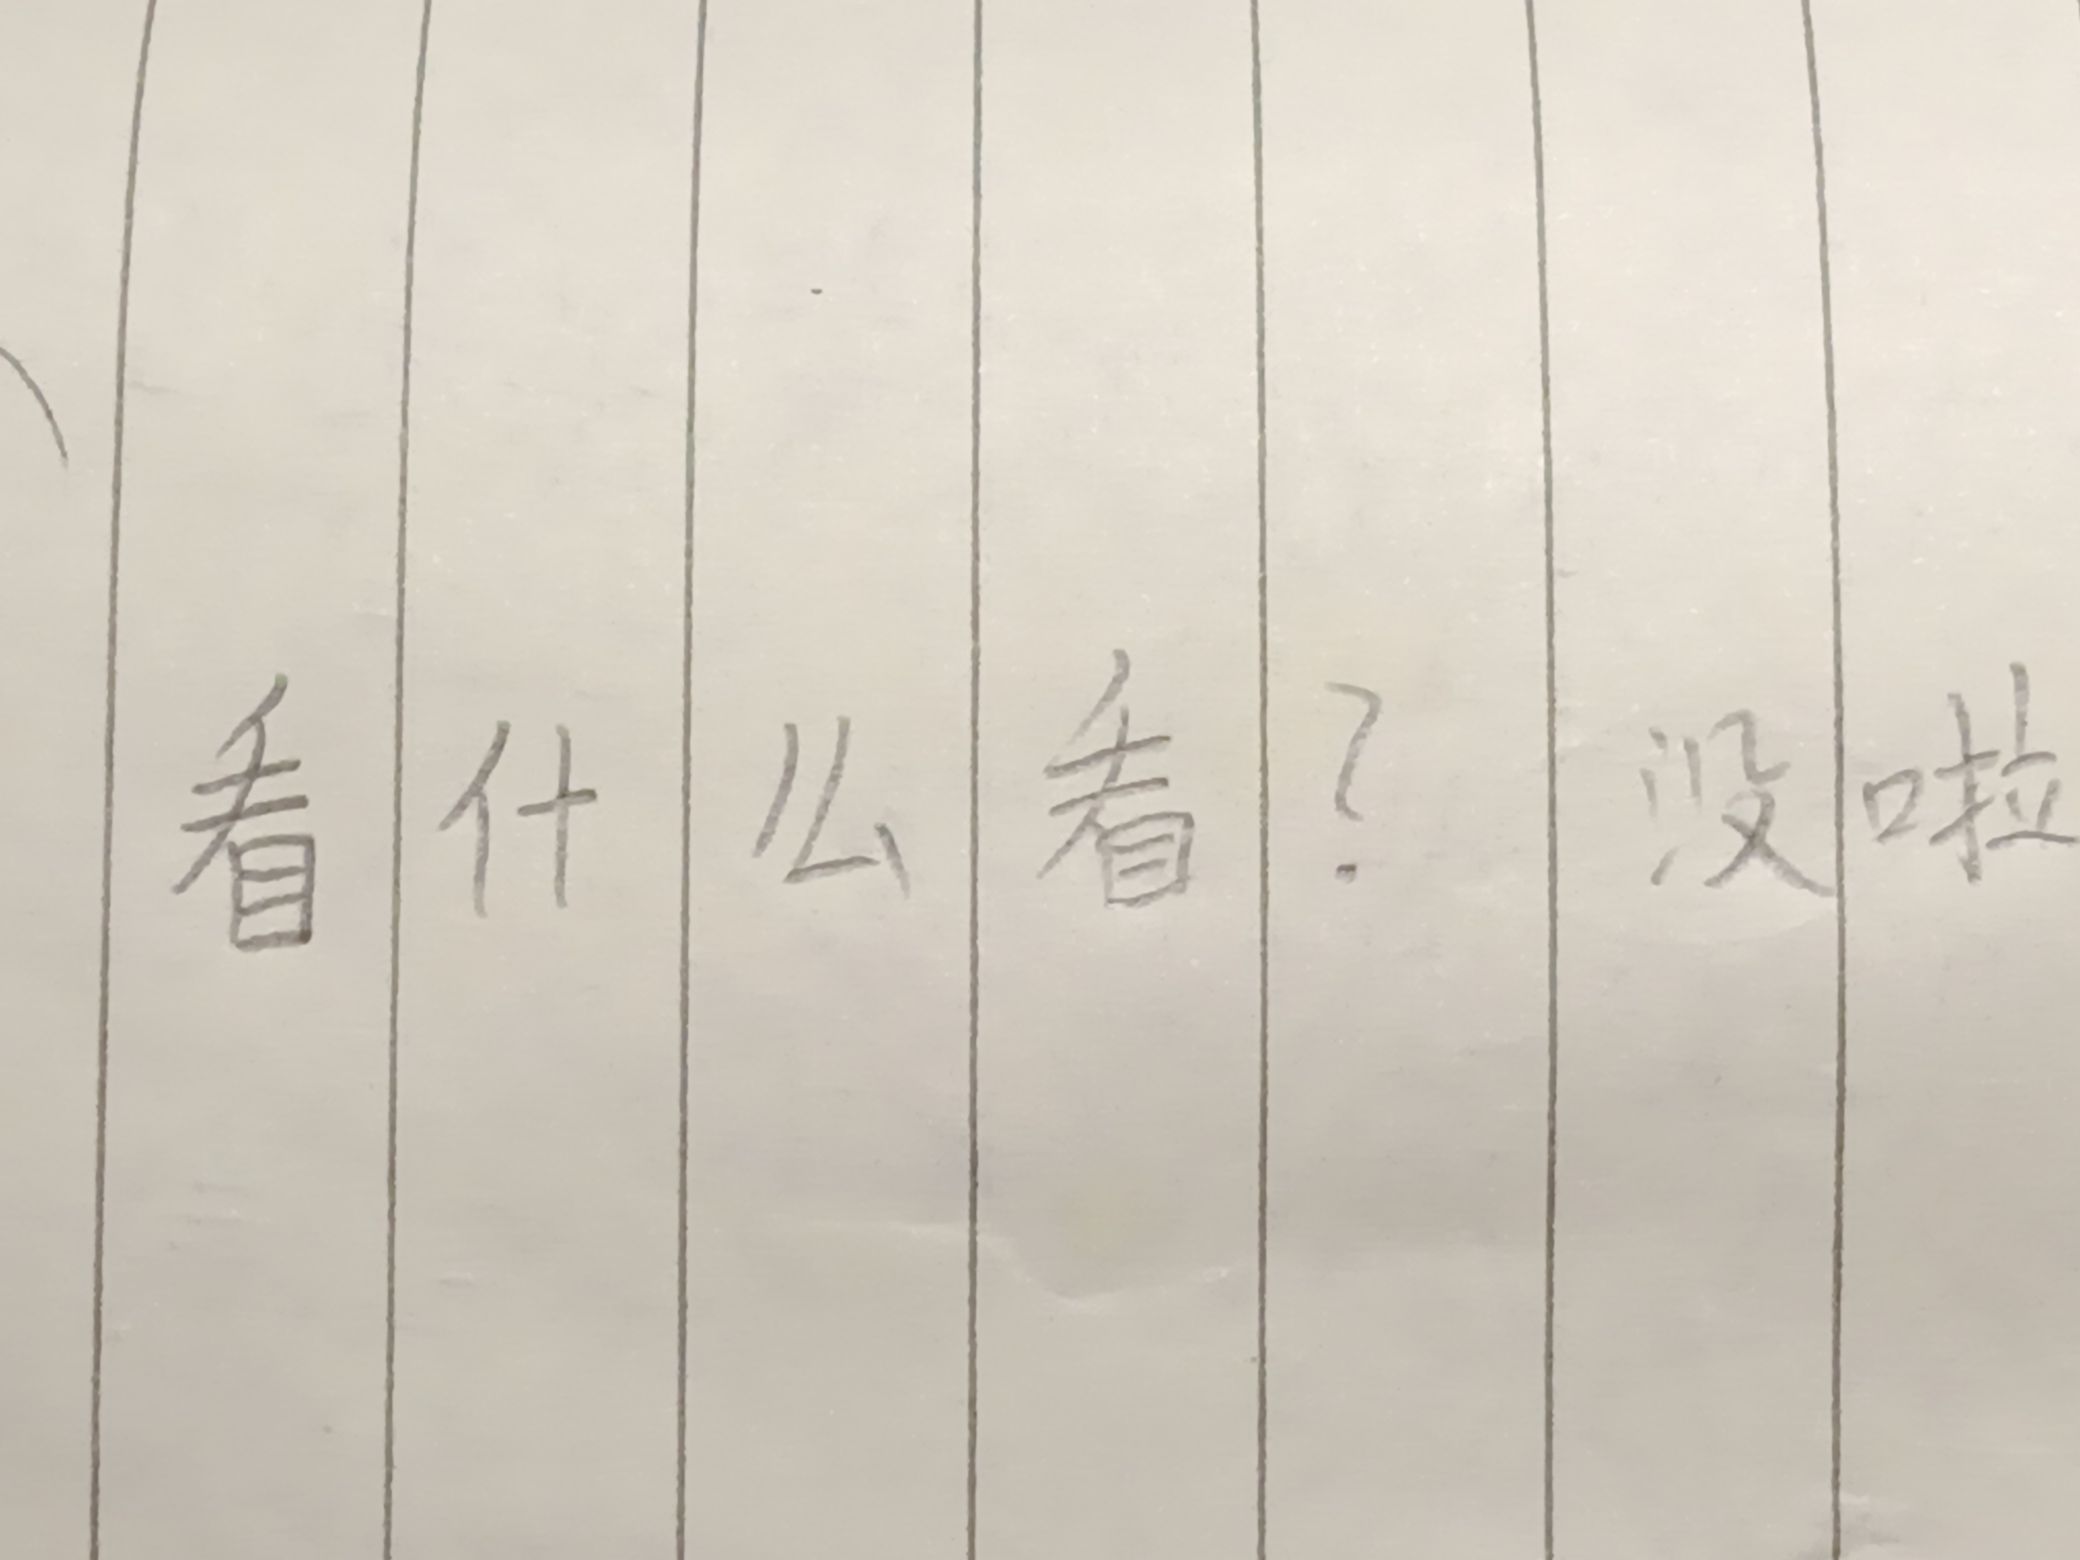 看什么看？没啦